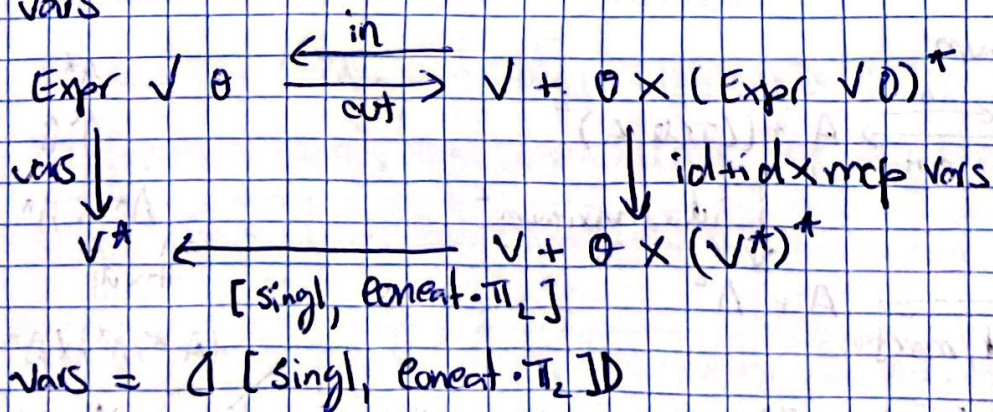 vars
in
Expr V O ⇄ V + O × (Expr V O)*
out
vars ↓ ↓ id+id×map vars
V* ← V + O × (V*)*
[singl, concat·π₂]
vars = ⦇ [singl, concat·π₂] ⦈